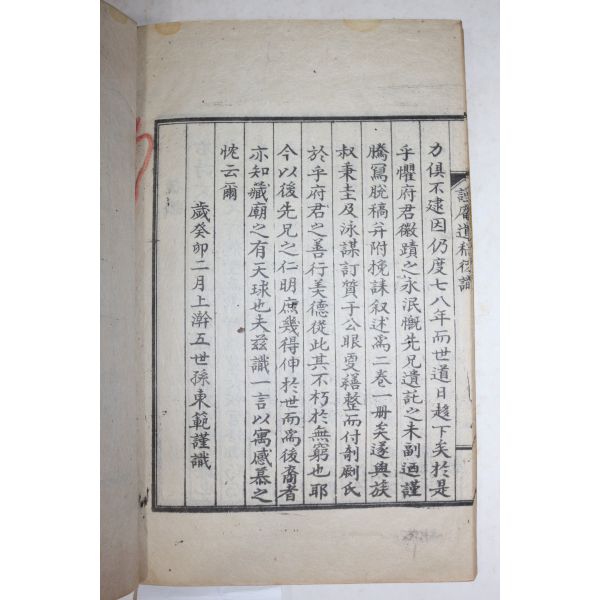 力俱不逮因仍度七八年而世道日趍下矣於是
乎懼府君徽蹟之永泯慨先兄遺託之未副迺謹
騰寫脫稿弁附挽誄叙述為二卷一册矣遂與族
叔秉圭及泳謨訂質于公眼更繕整而付剞劂氏
於乎府君之善行美德從此其不朽於無窮也耶
今以後先兄之仁明庶幾得伸於世而為後裔者
亦知藏廟之有天球也夫玆識一言以寓感慕之
忱云爾
歲癸卯二月上澣五世孫東範謹識
遺稿後識